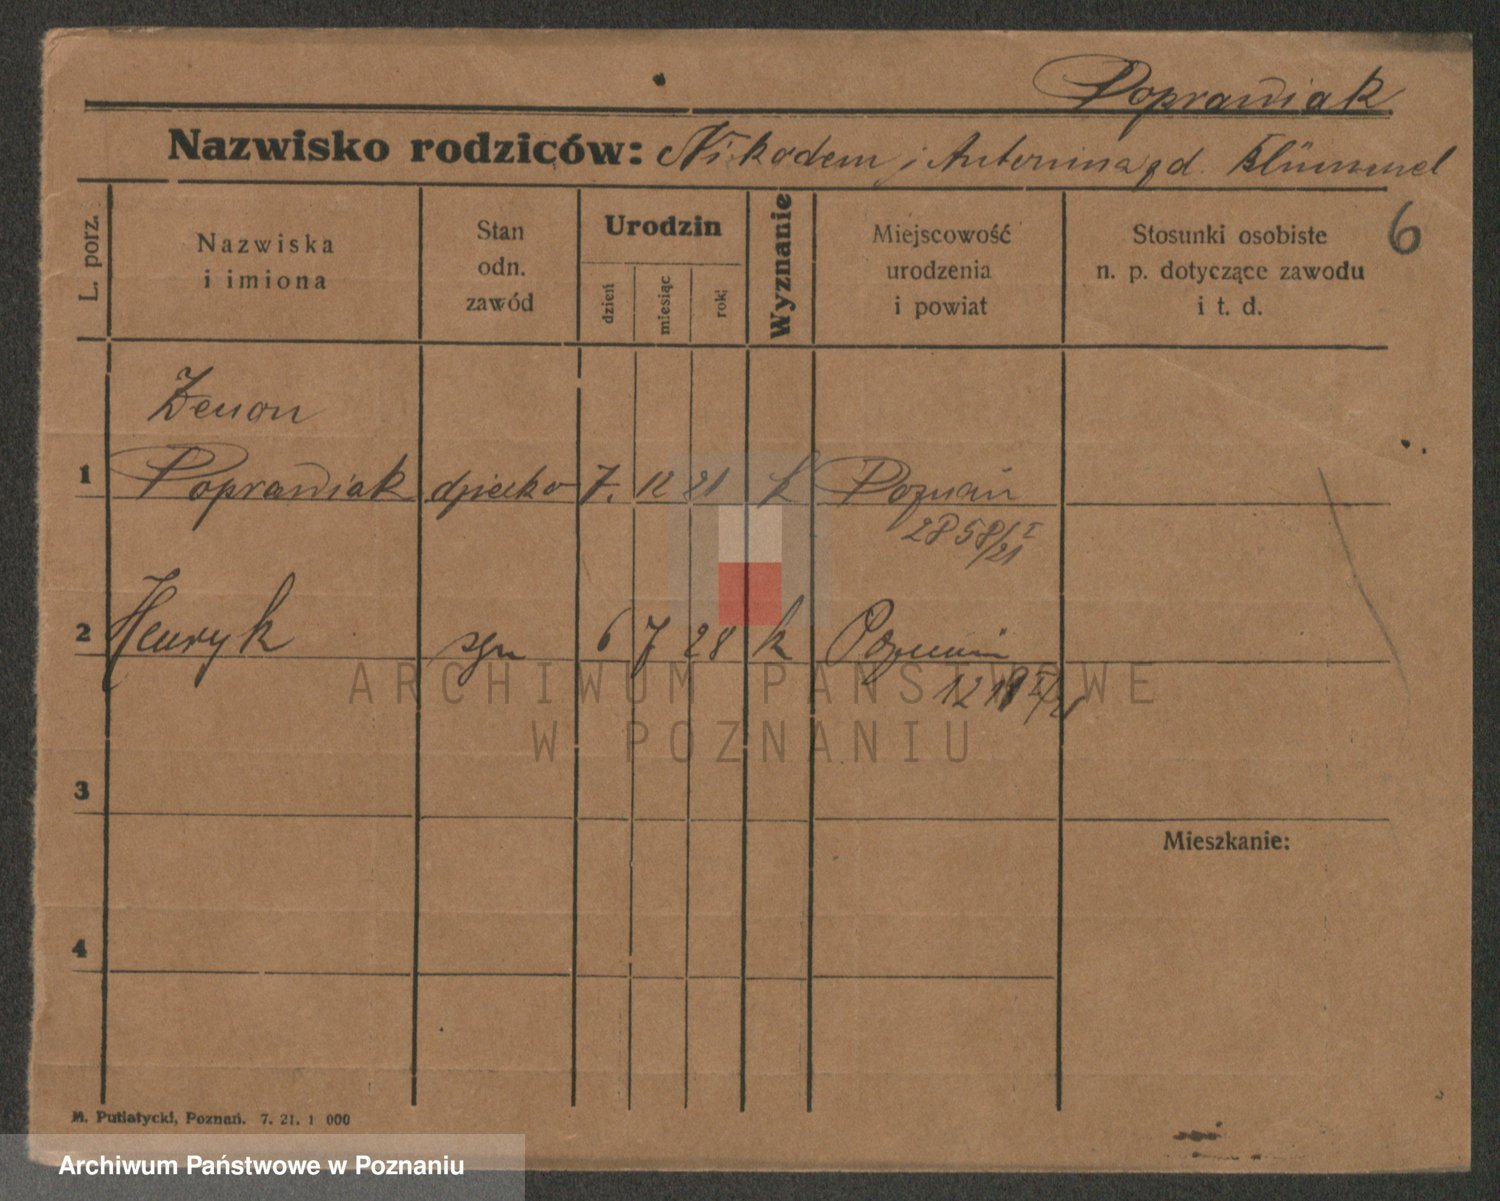 Poprawiak
Nazwisko rodziców: Nikodem i Antonina zd. Klümmel
6
L. porz.
Nazwiska
i imiona
Stan
odn.
zawód
Urodzin
dzień
miesiąc
rok
Wyznanie
Miejscowość
urodzenia
i powiat
Stosunki osobiste
n. p. dotyczące zawodu
i t. d.
Zenon
1 Poprawiak dziecko 7. 12 21 k Poznań
2858/I/21
2 Henryk syn 6 7 28 k Poznań
3
Mieszkanie:
4
M. Putiatycki, Poznań. 7. 21. 1 000
ARCHIWUM PAŃSTWOWE
W POZNANIU
Archiwum Państwowe w Poznaniu